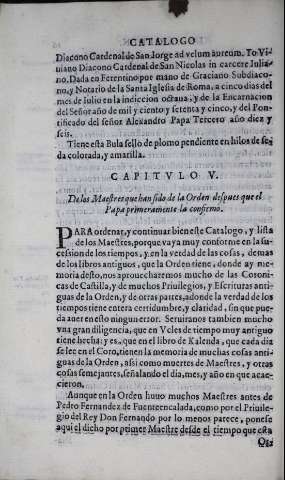 CATALOGO
Diacono Cardenal de San Jorge ad velum aureum. Yo Vi-
uiano Diacono Cardenal de San Nicolas in carcere Julia-
no. Dada en Ferentino por mano de Graciano Subdiaco-
no, y Notario de la Santa Iglesia de Roma, a cinco dias del
mes de Iulio en la indiccion octaua, y de la Encarnacion
del Señor año de mil y ciento y setenta y cinco, y del Pon-
tificado del señor Alexandro Papa Tercero año diez y
seis.
Tiene esta Bula sello de plomo pendiente en hilos de se-
da colorada, y amarilla.
CAPITVLO V.
De los Maestres que han sido de la Orden despues que el
Papa primeramente la confirmo.
PARA ordenar, y continuar bien este Catalogo, y lista
de los Maestres, porque vaya muy conforme en la su-
cession de los tiempos, y en la verdad de las cosas, demas
de los libros antiguos, que la Orden tiene, donde ay me-
moria desto, nos aprouecharemos mucho de las Coroni-
cas de Castilla, y de muchos Priuilegios, y Escrituras anti-
guas de la Orden, y de otras partes, adonde la verdad de los
tiempos tiene entera certidumbre, y claridad, sin que pue-
da auer en esto ninguerror. Seruiranos tambien mucho
vna gran diligencia, que en Vcles de tiempo muy antiguo
tiene hecha: y es, que en el libro de Kalenda, que cada dia
se lee en el Coro, tienen la memoria de muchas cosas anti-
guas de la Orden, assi como muertes de Maestres, y otras
cosas semejantes, señalando el dia, mes, y año en que acae-
cieron.
Aunque en la Orden huuo muchos Maestres antes de
Pedro Fernandez de Fuenteencalada, como por el Priuile-
gio del Rey Don Fernando por lo menos parece, ponese
aqui el dicho por primer Maestre desde el tiempo que esta